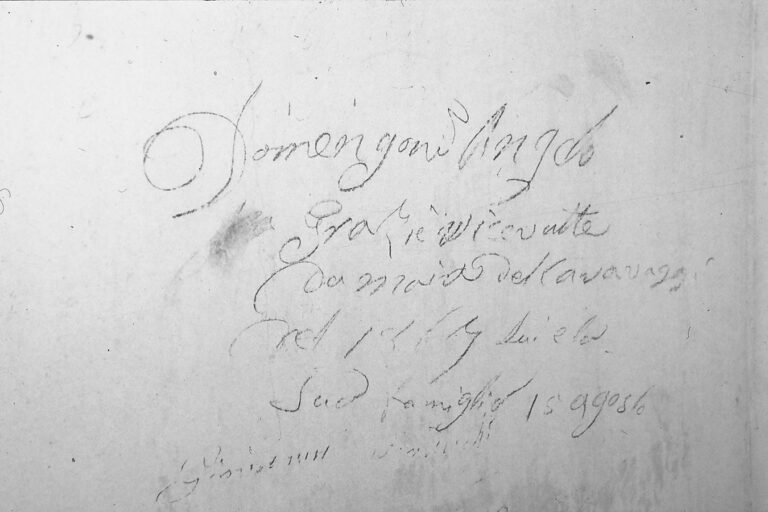 Domengoni Angelo
Grazie Ricevutte
Da maria Del Caravaggi
nel lui e la
Sua famiglia 15 agosto